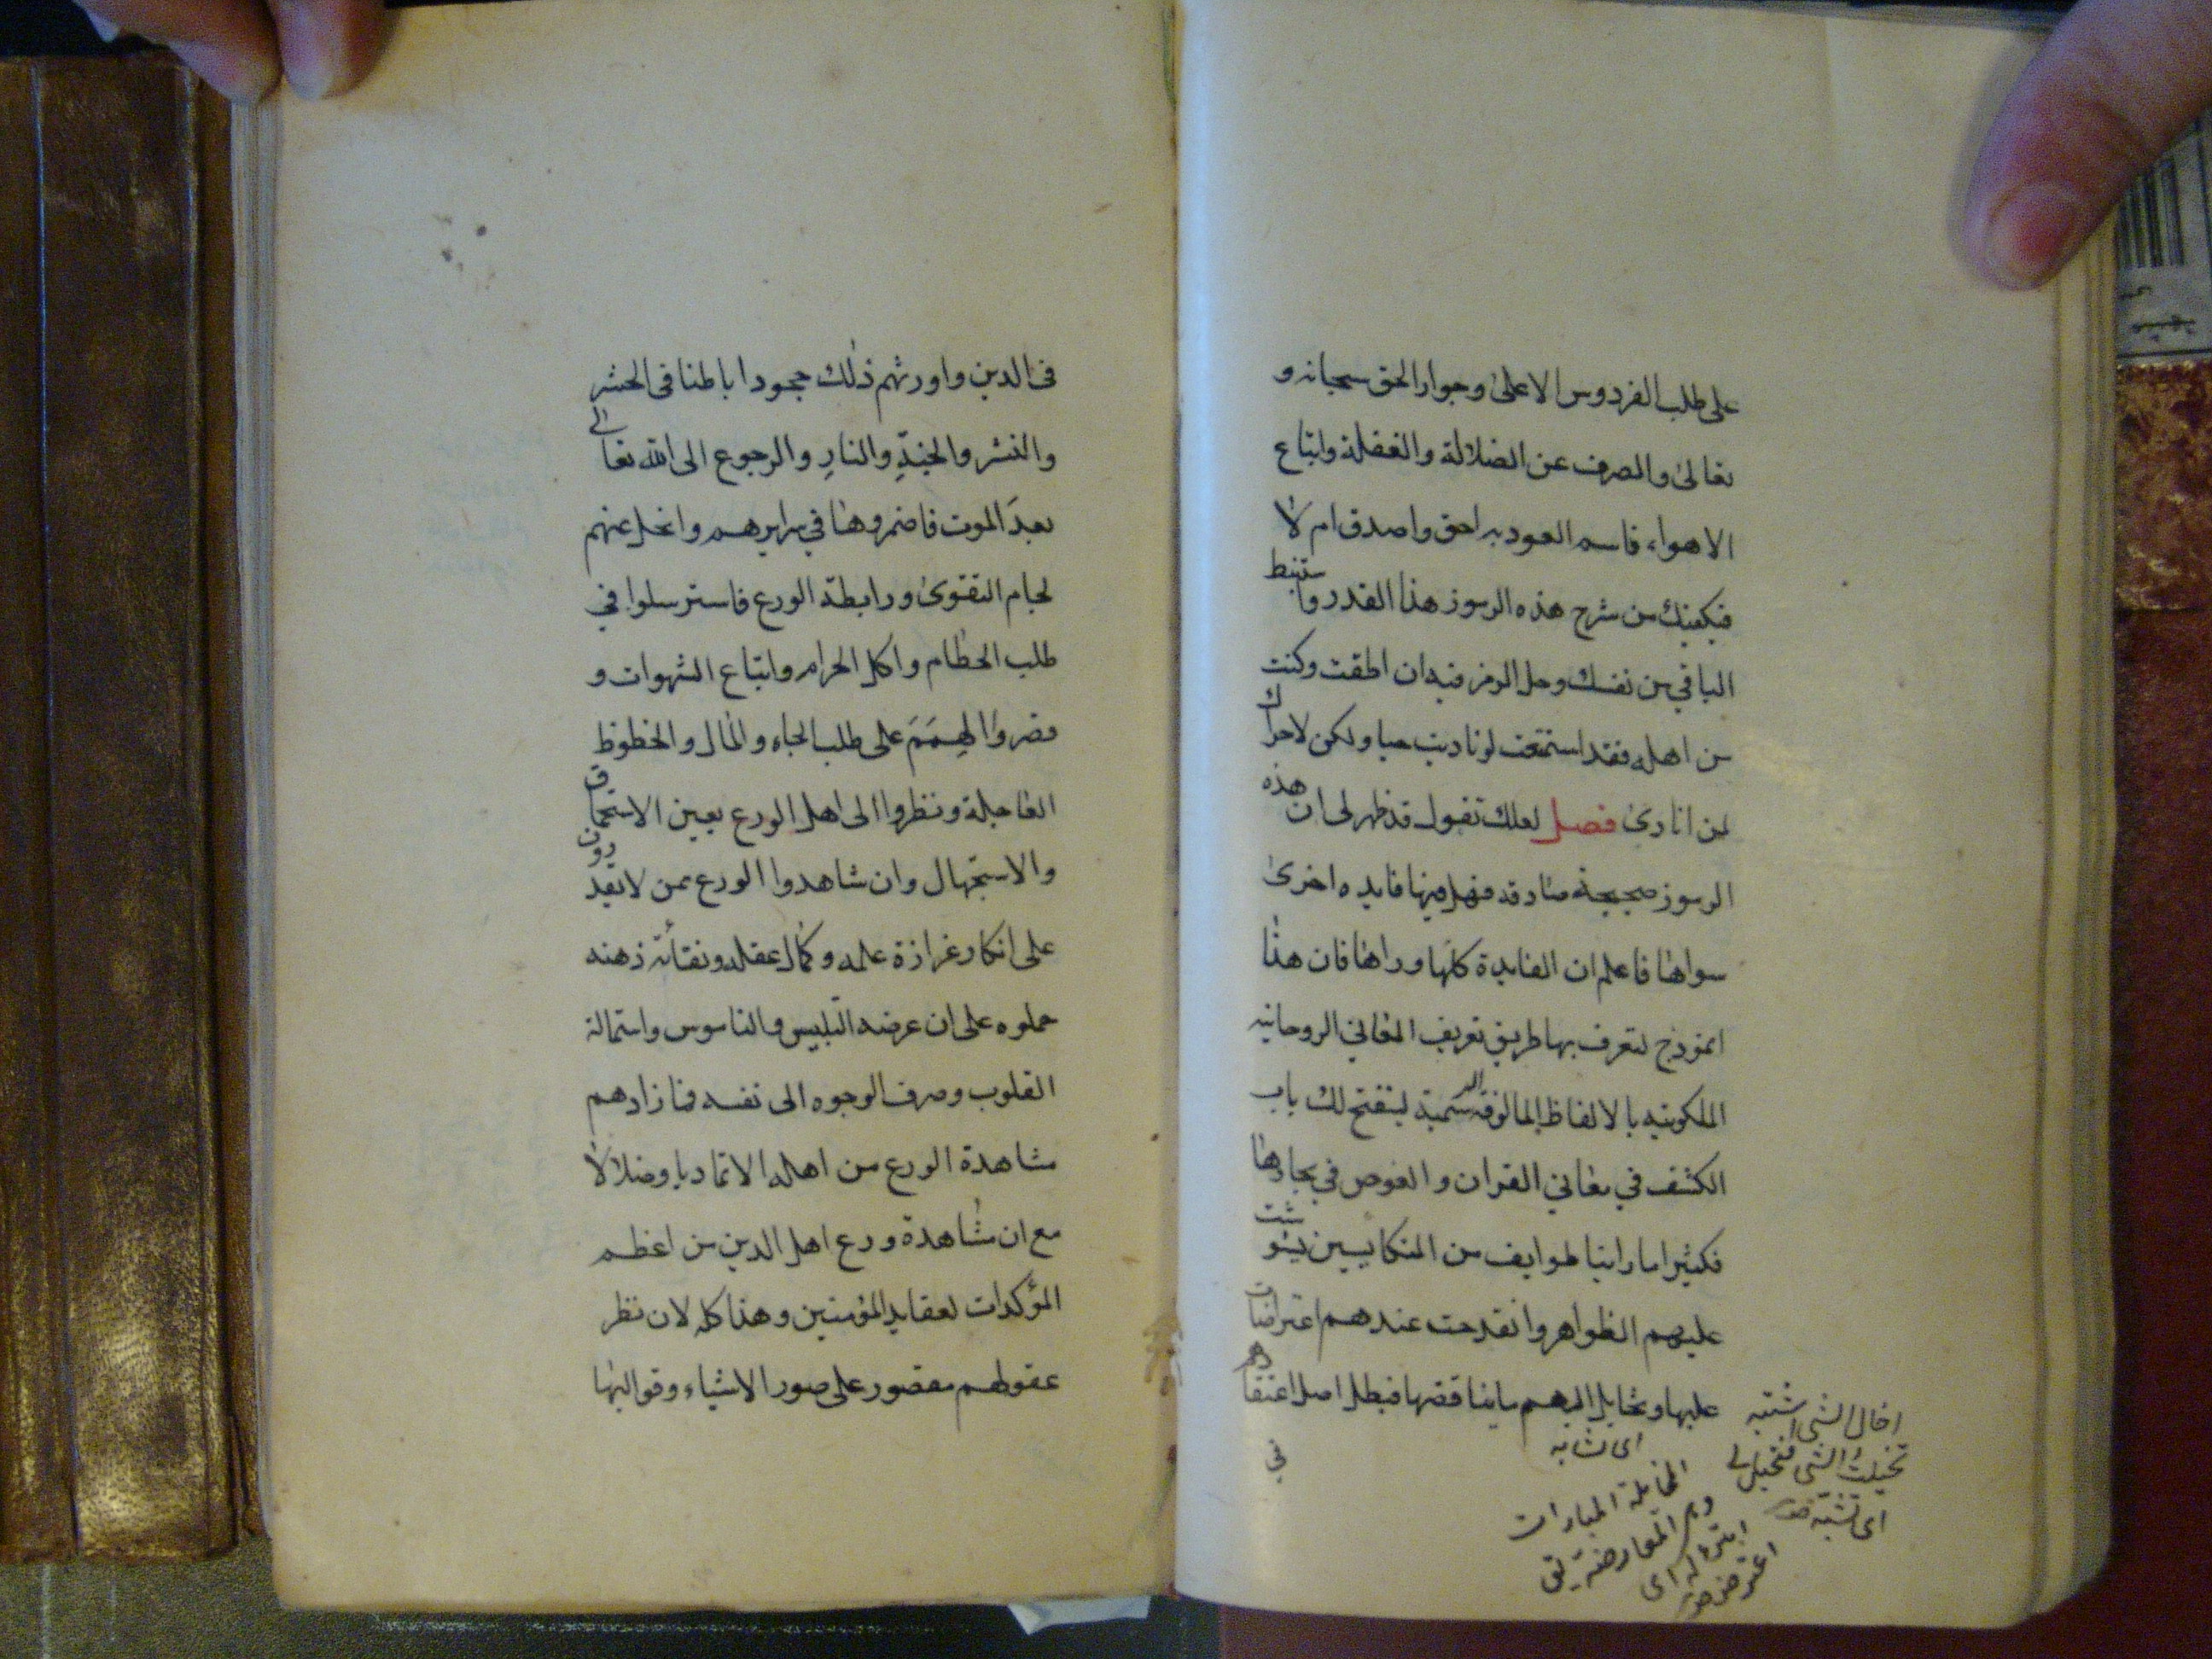 على طلب الفردوس الاعلى وجوار الحق سبحانه و
تعالى والصرف عن الضلالة والغفلة واتباع
الاهواء فاسم العود به احق واصدق ام لا
فيكفيك من شرح هذه الرموز هذا القدر واستنبط
الباقي من نفسك وحل الرمز فيه ان اطقت وكنت
من اهله فقد اسمعت لو ناديت حيا ولكن لا حراك
لمن انادى فصل لعلك تقول قد ظهر لى ان هذه
الرموز صحيحة صادقة فهل فيها فايده اخرى
سواها فاعلم ان الفايدة كلها وراها فان هذا
انموذج لتعرف بها طريق تعريف المعاني الروحانيه
الملكوتيه بالالفاظ المالوفة الرسمية لينفتح لك باب
الكشف في معاني القران والغوص في بحارها
فكثيرا ما راينا طوايف من المتكايسين تشوشت
عليهم الظواهر وانقدحت عندهم اعتراضات
عليها وتخايل اليهم ما يناقضها فبطل اصل اعتقادهم
في
اى تشابه
اخال الشئ اشتبه
تخيلت الشئ فتخيل لي
اى تشبه
المخايلة المبارات
المعارضة
انبرى له اى
اعترض
فى الدين واورثهم ذلك جحودا باطنا فى الحشر
والنشر والجنة والنار والرجوع الى الله تعالى
بعد الموت فاضمروها في سرايرهم وانحل عنهم
لجام التقوى ورابطة الورع فاسترسلوا في
طلب الحطام واكل الحرام واتباع الشهوات و
قصروا الهمم على طلب الجاه والمال والحظوظ
العاجلة ونظروا الى اهل الورع بعين الاستحماق
والاستجهال وان شاهدوا الورع ممن لا يقدرون
على انكار غزازة علمه وكمال عقله ونقائة ذهنه
حملوه على ان غرضه التلبيس والناموس واستمالة
القلوب وصرف الوجوه الى نفسه فما زادهم
مشاهدة الورع من اهله الا تماديا وضلالا
مع ان مشاهدة ورع اهل الدين من اعظم
المؤكدات لعقايد المؤمنين وهذا كله لان نظر
عقولهم مقصور على صور الاشياء وقوالبها